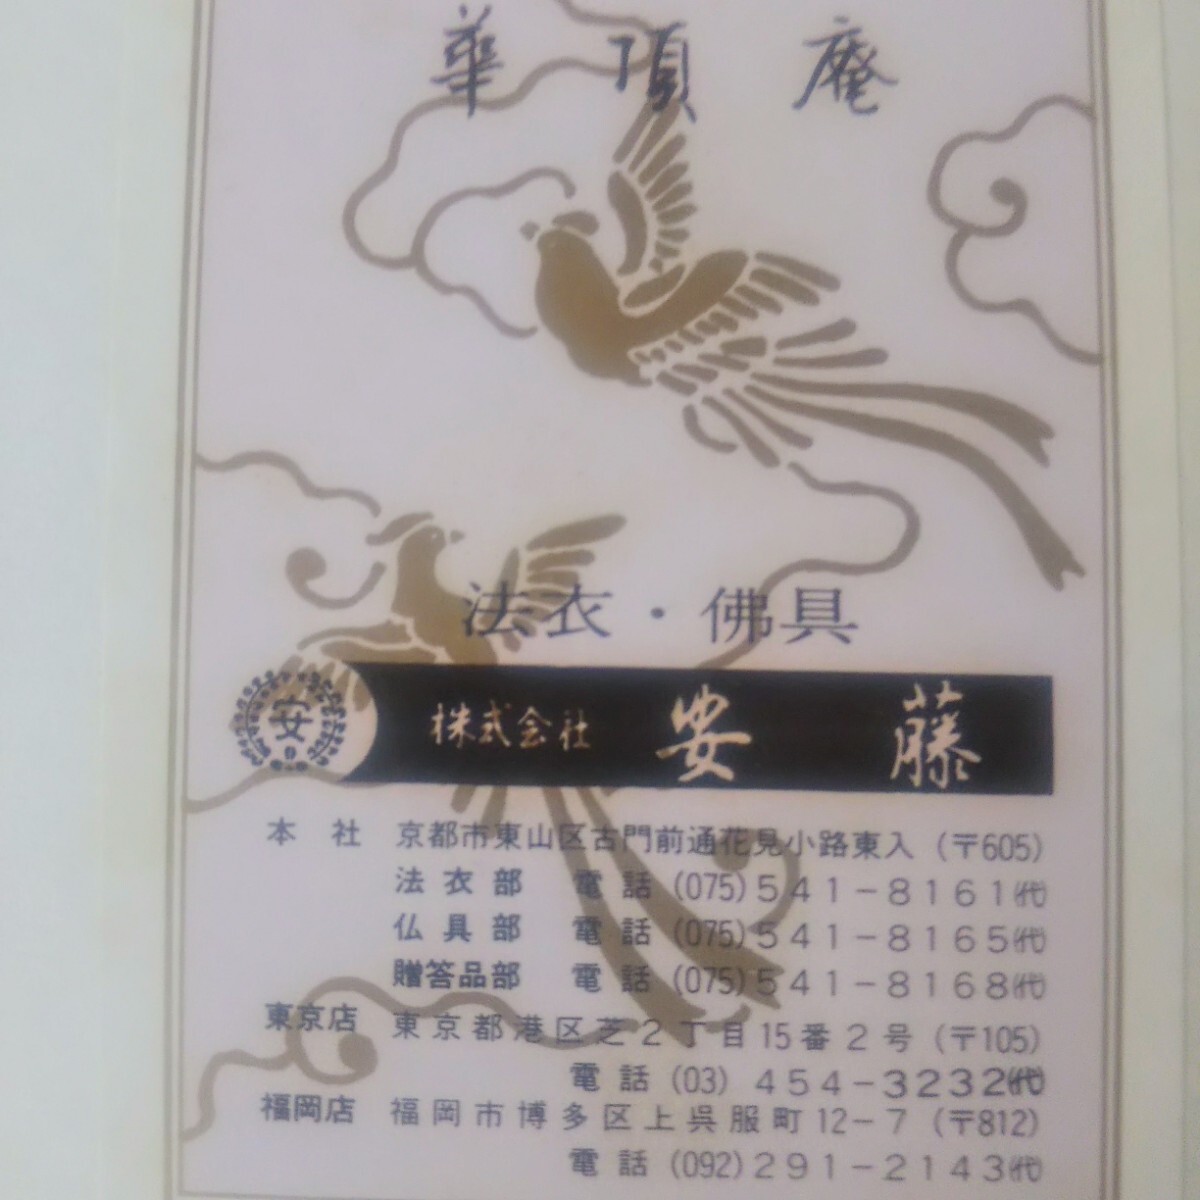 華頂庵
法衣・佛具
安
株式会社 安藤
本社 京都市東山区古門前通花見小路東入 (〒605)
法衣部 電話 (075)541-8161㈹
仏具部 電話 (075)541-8165㈹
贈答品部 電話 (075)541-8168㈹
東京店 東京都港区芝2丁目15番2号 (〒105)
電話 (03) 454-3232㈹
福岡店 福岡市博多区上呉服町12-7 (〒812)
電話 (092)291-2143㈹